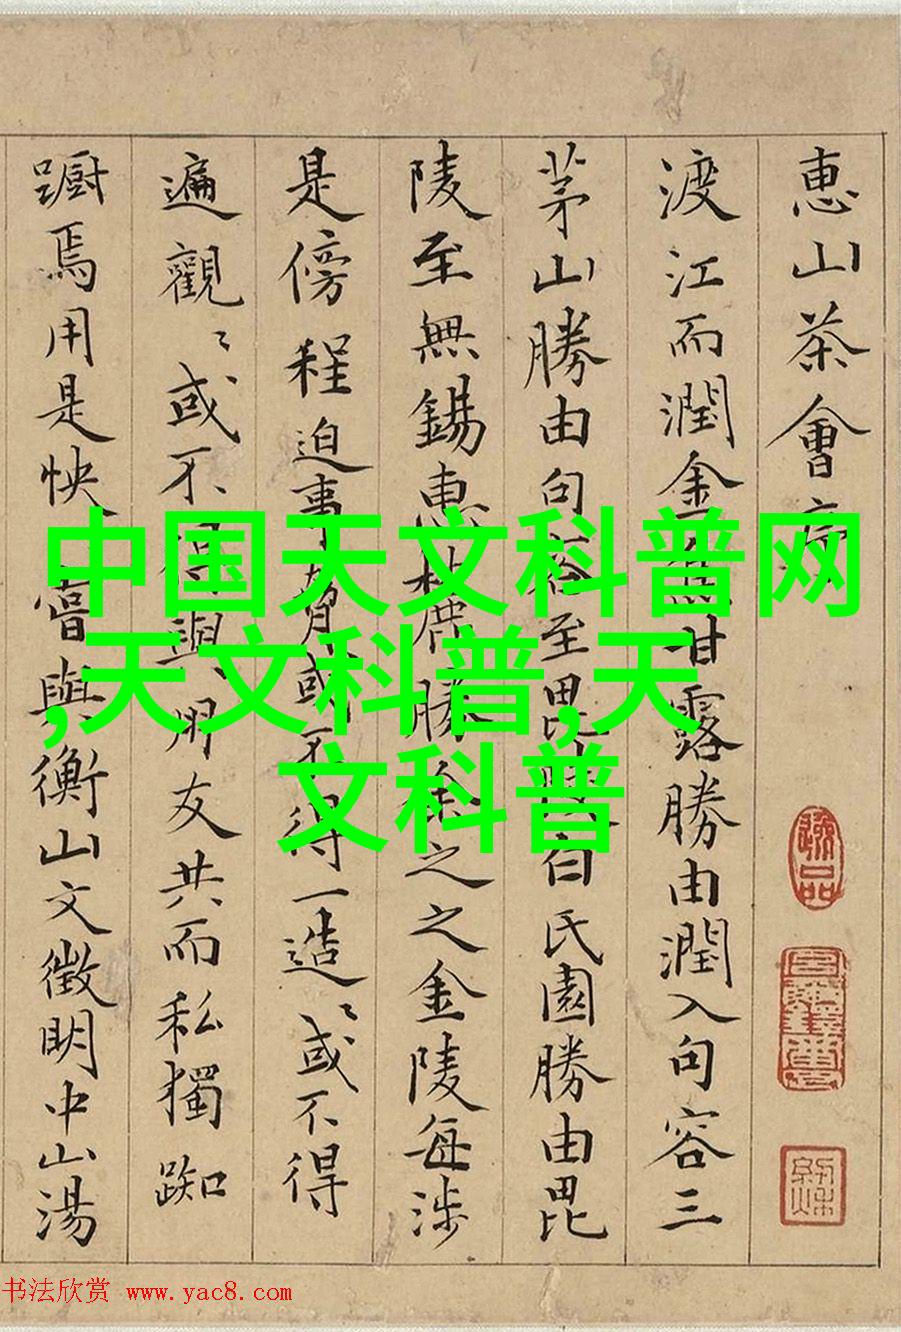 惠山茶會序
渡江而潤金焦甘露勝由潤入句容三
茅山勝由句容至毘陵白氏園勝由毘
陵至無錫惠麓勝余之之金陵每涉
是傍程迫事有或不得一造〻或不得
遍觀〻或不得與朋友共而私獨踟
躕焉用是怏嘗與衡山文徵明中山湯
中国天文科普网
,天文科普,天
文科普
书法欣赏 www.yac8.com